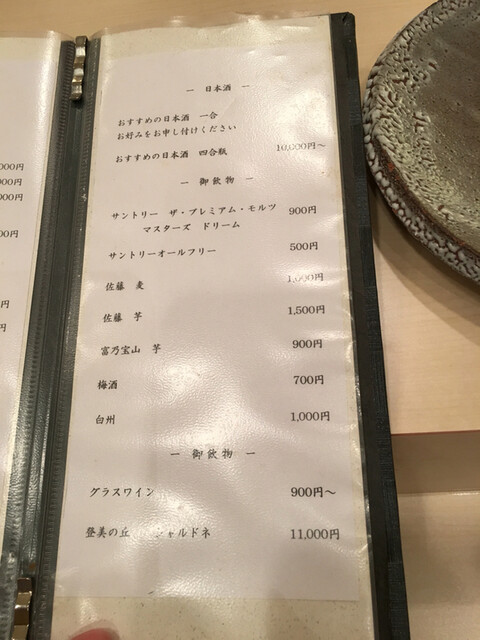 ― 日本酒 ―
おすすめの日本酒 一合
お好みをお申し付けください
おすすめの日本酒 四合瓶 10,000円～
― 御飲物 ―
サントリー ザ・プレミアム・モルツ 900円
マスターズ ドリーム
サントリーオールフリー 500円
佐藤 麦 1,000円
佐藤 芋 1,500円
富乃宝山 芋 900円
梅酒 700円
白州 1,000円
― 御飲物 ―
グラスワイン 900円～
登美の丘 シャルドネ 11,000円
000円
000円
000円
000円
円
円